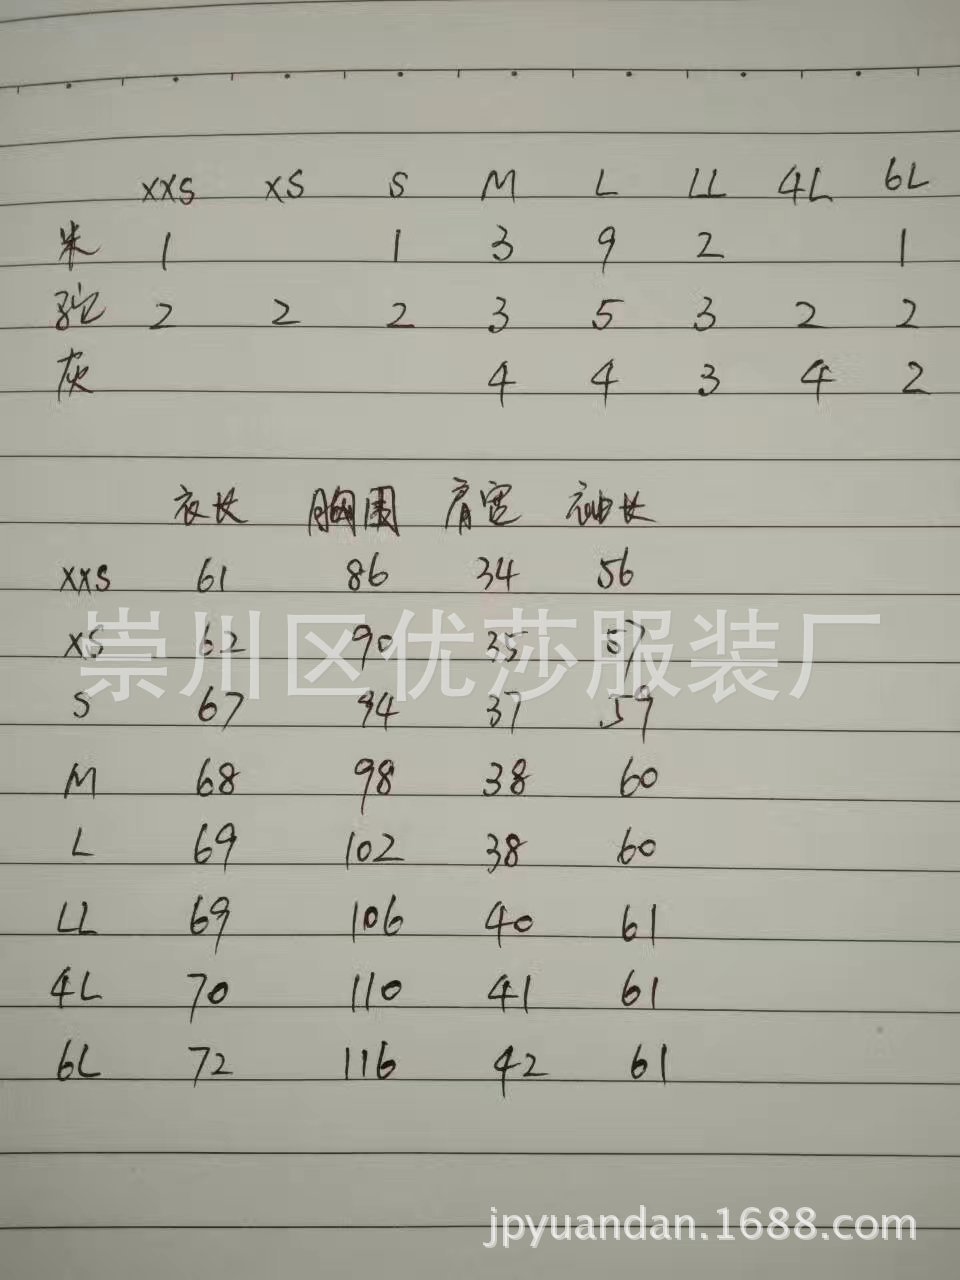 XXS XS S M L LL 4L 6L
米 1 1 3 9 2 1
驼 2 2 2 3 5 3 2 2
灰 4 4 3 4 2
衣长 胸围 肩宽 袖长
XXS 61 86 34 56
XS 62 90 35 57
崇川区优莎服装厂
S 67 94 37 59
M 68 98 38 60
L 69 102 38 60
LL 69 106 40 61
4L 70 110 41 61
6L 72 116 42 61
jpyuandan.1688.com